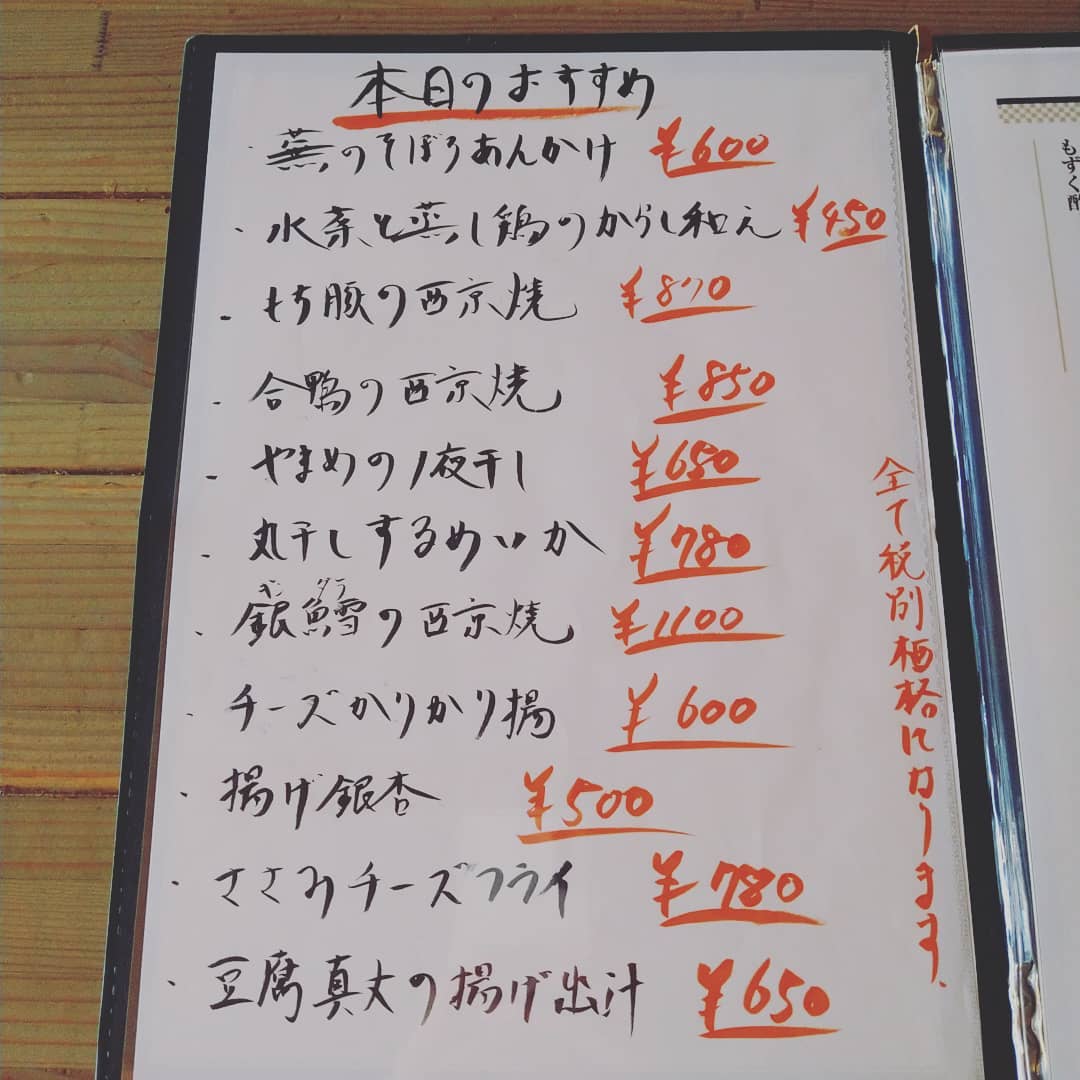 本日のおすすめ
・蕪のそぼろあんかけ ¥600
・水菜と蒸し鶏のからし和え ¥450
・もち豚の西京焼 ¥870
・合鴨の西京焼 ¥850
・やまめの1夜干し ¥650
・丸干しするめいか ¥780
ギンダラ
・銀鱈の西京焼 ¥1100
・チーズかりかり揚 ¥600
・揚げ銀杏 ¥500
・ささみチーズフライ ¥780
・豆腐真丈の揚げ出汁 ¥650
全て税別価格になります。
もずく酢